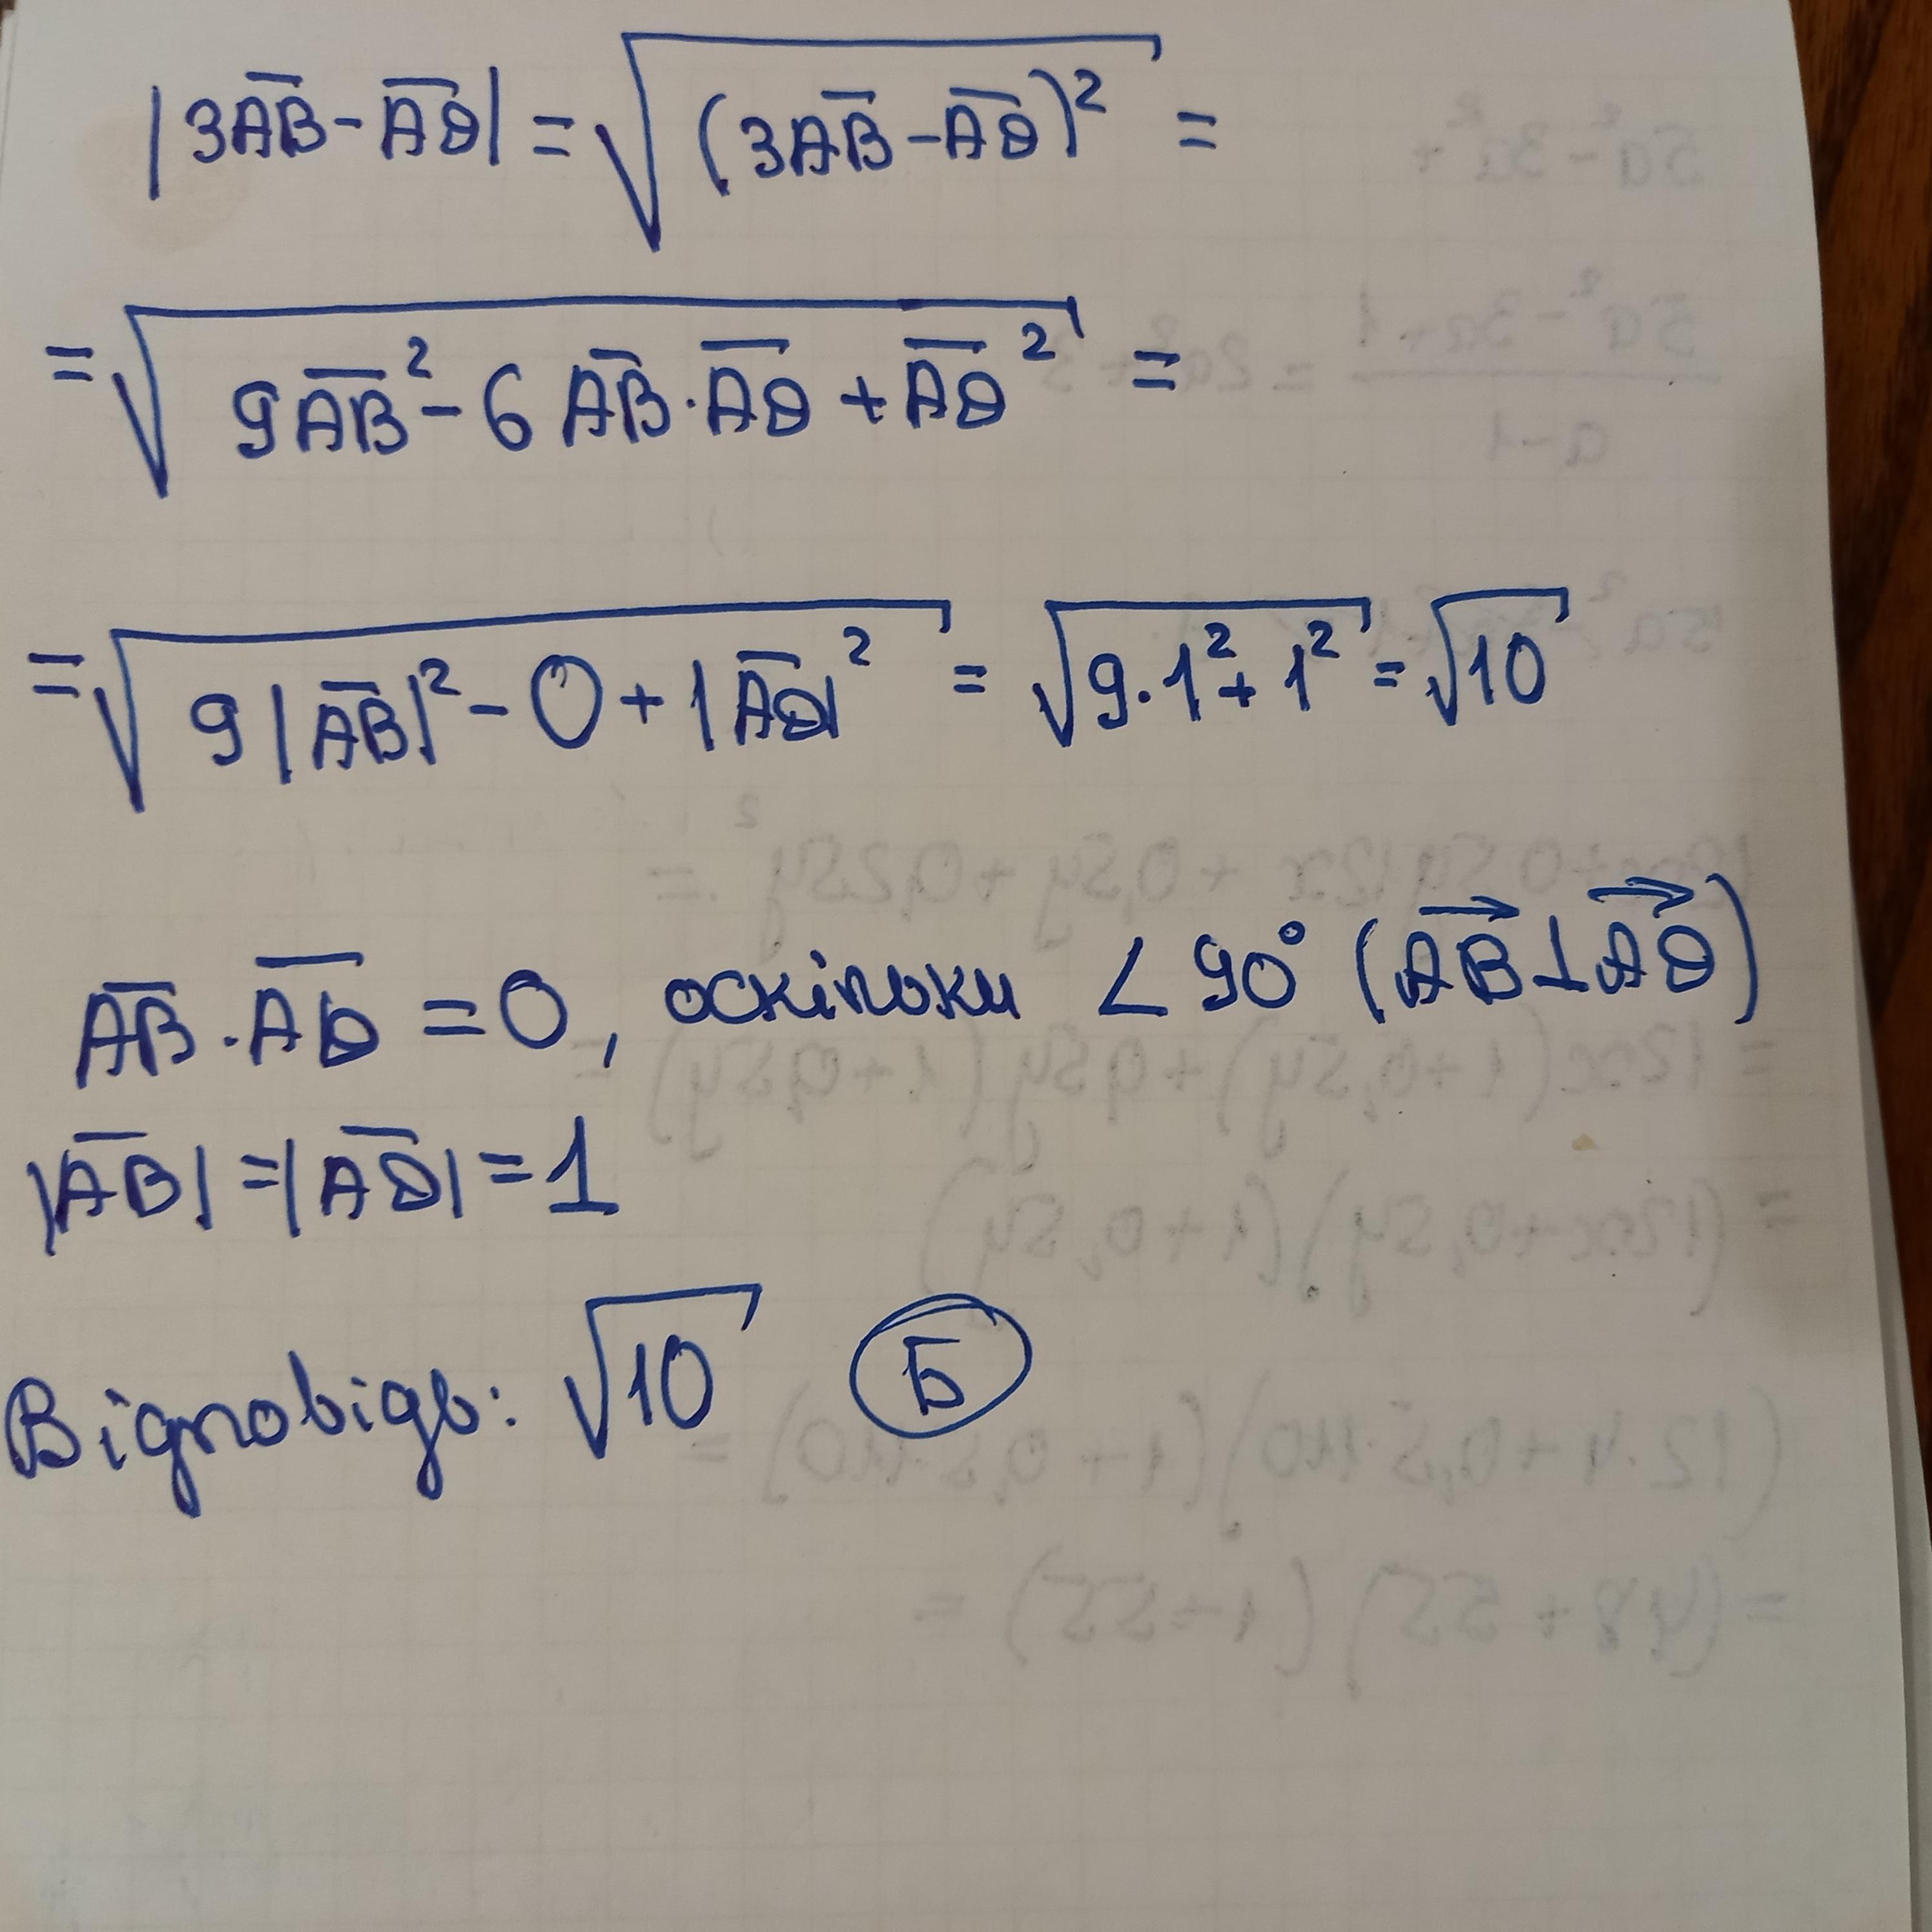 |3AB̅ - A̅D̅| = √(3AB̅ - A̅D̅)² =
= √9A̅B̅² - 6 AB̅ · A̅D̅ + A̅D̅² =
= √9|A̅B̅|² - 0 + |A̅D̅|² = √9·1² + 1² = √10
A̅B̅ · A̅D̅ = 0, оскільки ∠90° (AB→ ⊥ AD→)
|A̅B̅| = |A̅D̅| = 1
Відповідь: √10 Б